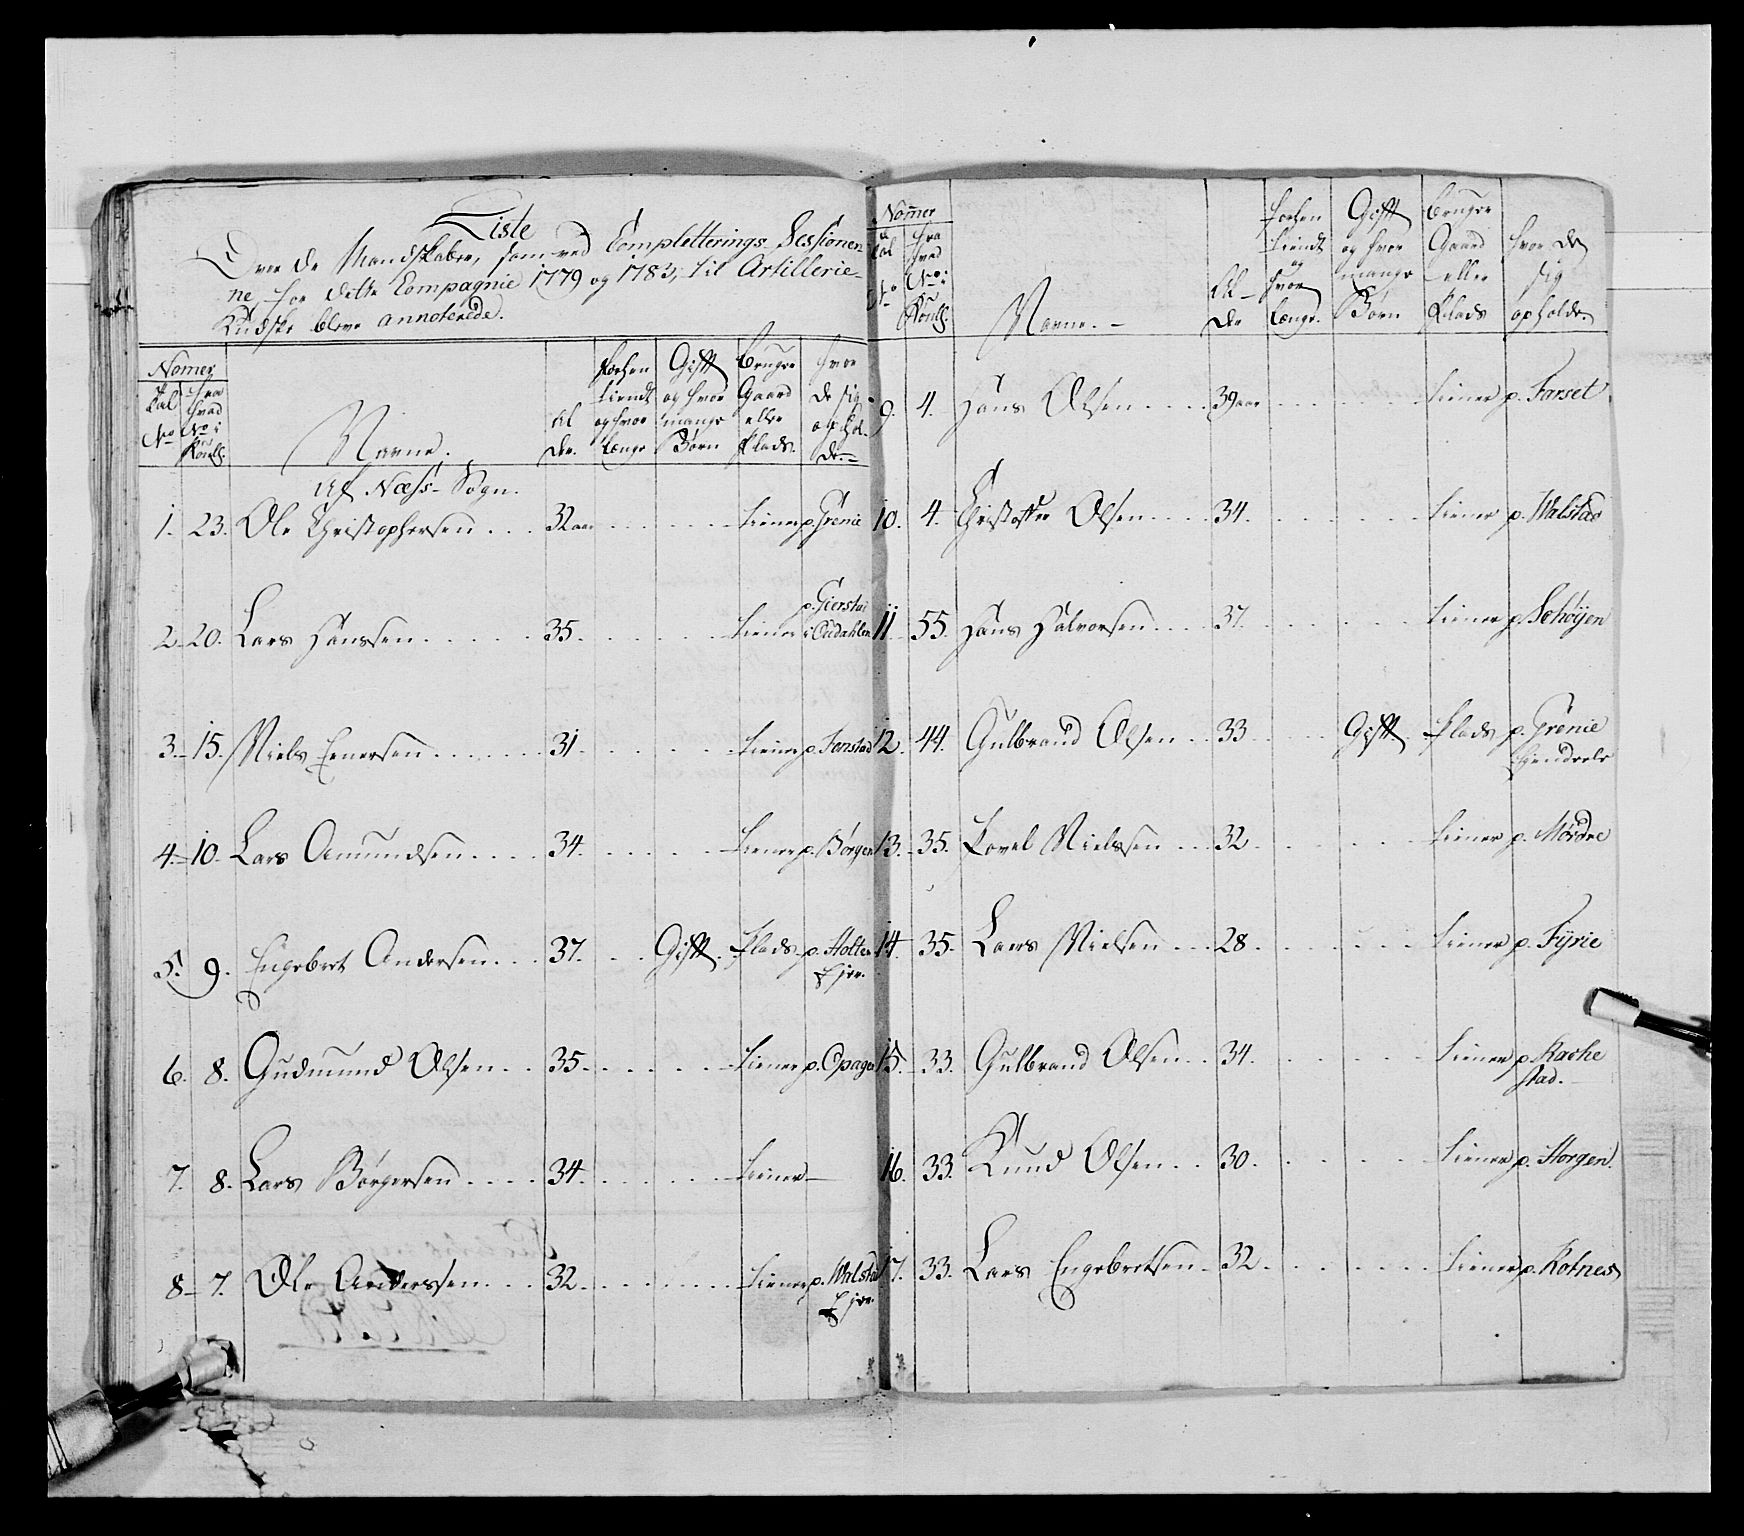 Liste
Over de Mandskaber, som ved Completterings Sessionen
ne, for dette Compagnie 1779 og 1783, til Artillerie-
Kudske bleve annoterede.
Nomer
Tal No | fra hvad No i Roulls. | Navne. | Al der. | forhen tiendt og hvor længe | Gift og hvor mange Børn | Bruger Gaard eller Plads. | hvor de sig ophol- de.
Af Næss-Sogn.
1. 23. Ole Christophersen 32 aar tiener p. Grenie
2. 20. Lars Hanssen 35. tiener p. Gierstad i Oudahlen
3. 15. Niels Evensen 31 tiener p. Fonstad
4. 10. Lars Amundsen 34. tiener p. Børgen
5. 9. Engebret Andersen 37. Gift. Plads p. Holter Ejer.
6. 8. Gudmund Olsen 35. tiener p. Opager
7. 8. Lars Børgersen 34. tiener
8. 7. Ole Anderssen 32. tiener p. Walstad Ejer.
Nomer
Tal No | fra hvad No i Roulls. | Navne. | Al- der | forhen tiendt og hvor længe. | Gift og hvor mange Børn | bruger Gaard eller Plads | hvor de sig opholder.
9. 4. Hans Olsen 39 aar tiener p. Farset
10. 4. Christoffer Olsen 34. tiener p. Walstad
11 55. Hans Halvorsen 37. tiener p. Schøyen
12. 44. Gulbrand Olsen 33 Gift. Plads p. Grenie
13. 35. Povel Nielssen 32 tiener p. Mørdre
14. 35. Lars Nielsen 28 tiener p. Fÿrie
15. 33. Gulbrand Olsen 34. tiener p. Kache
stad.
16. 33. Knud Olsen 30. tiener p. Horgen.
17. 33. Lars Engebretsen 32. tiener p. Rotnes